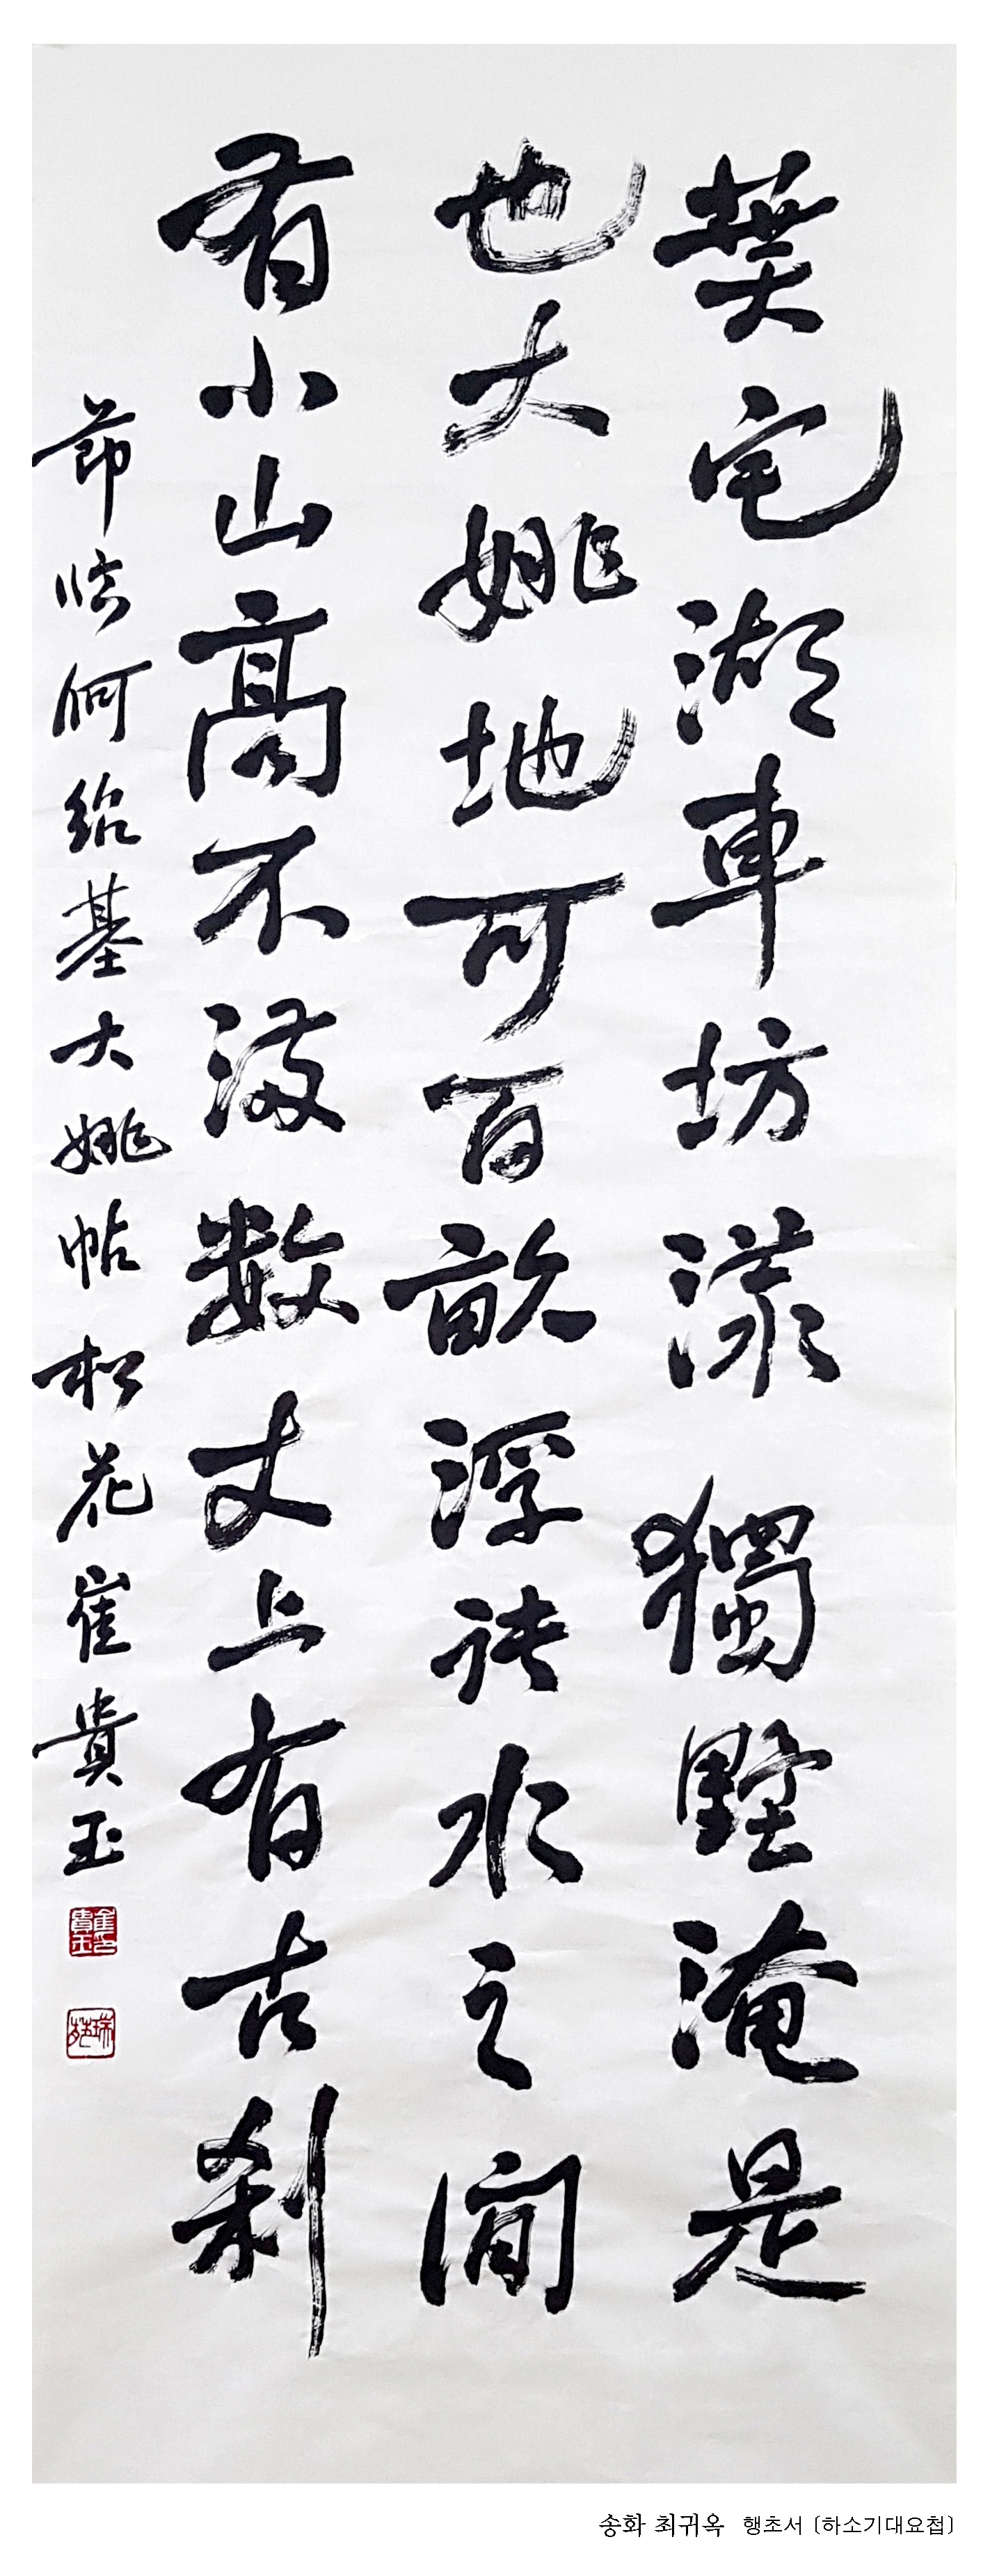 葉宅湖車坊漾獨墅淹是
也大姚地可百畝浮訣水之間
有小山高不滿數丈上有古刹
節臨何紹基大姚帖松花崔貴玉
송화 최귀옥 행초서 〔하소기대요첩〕